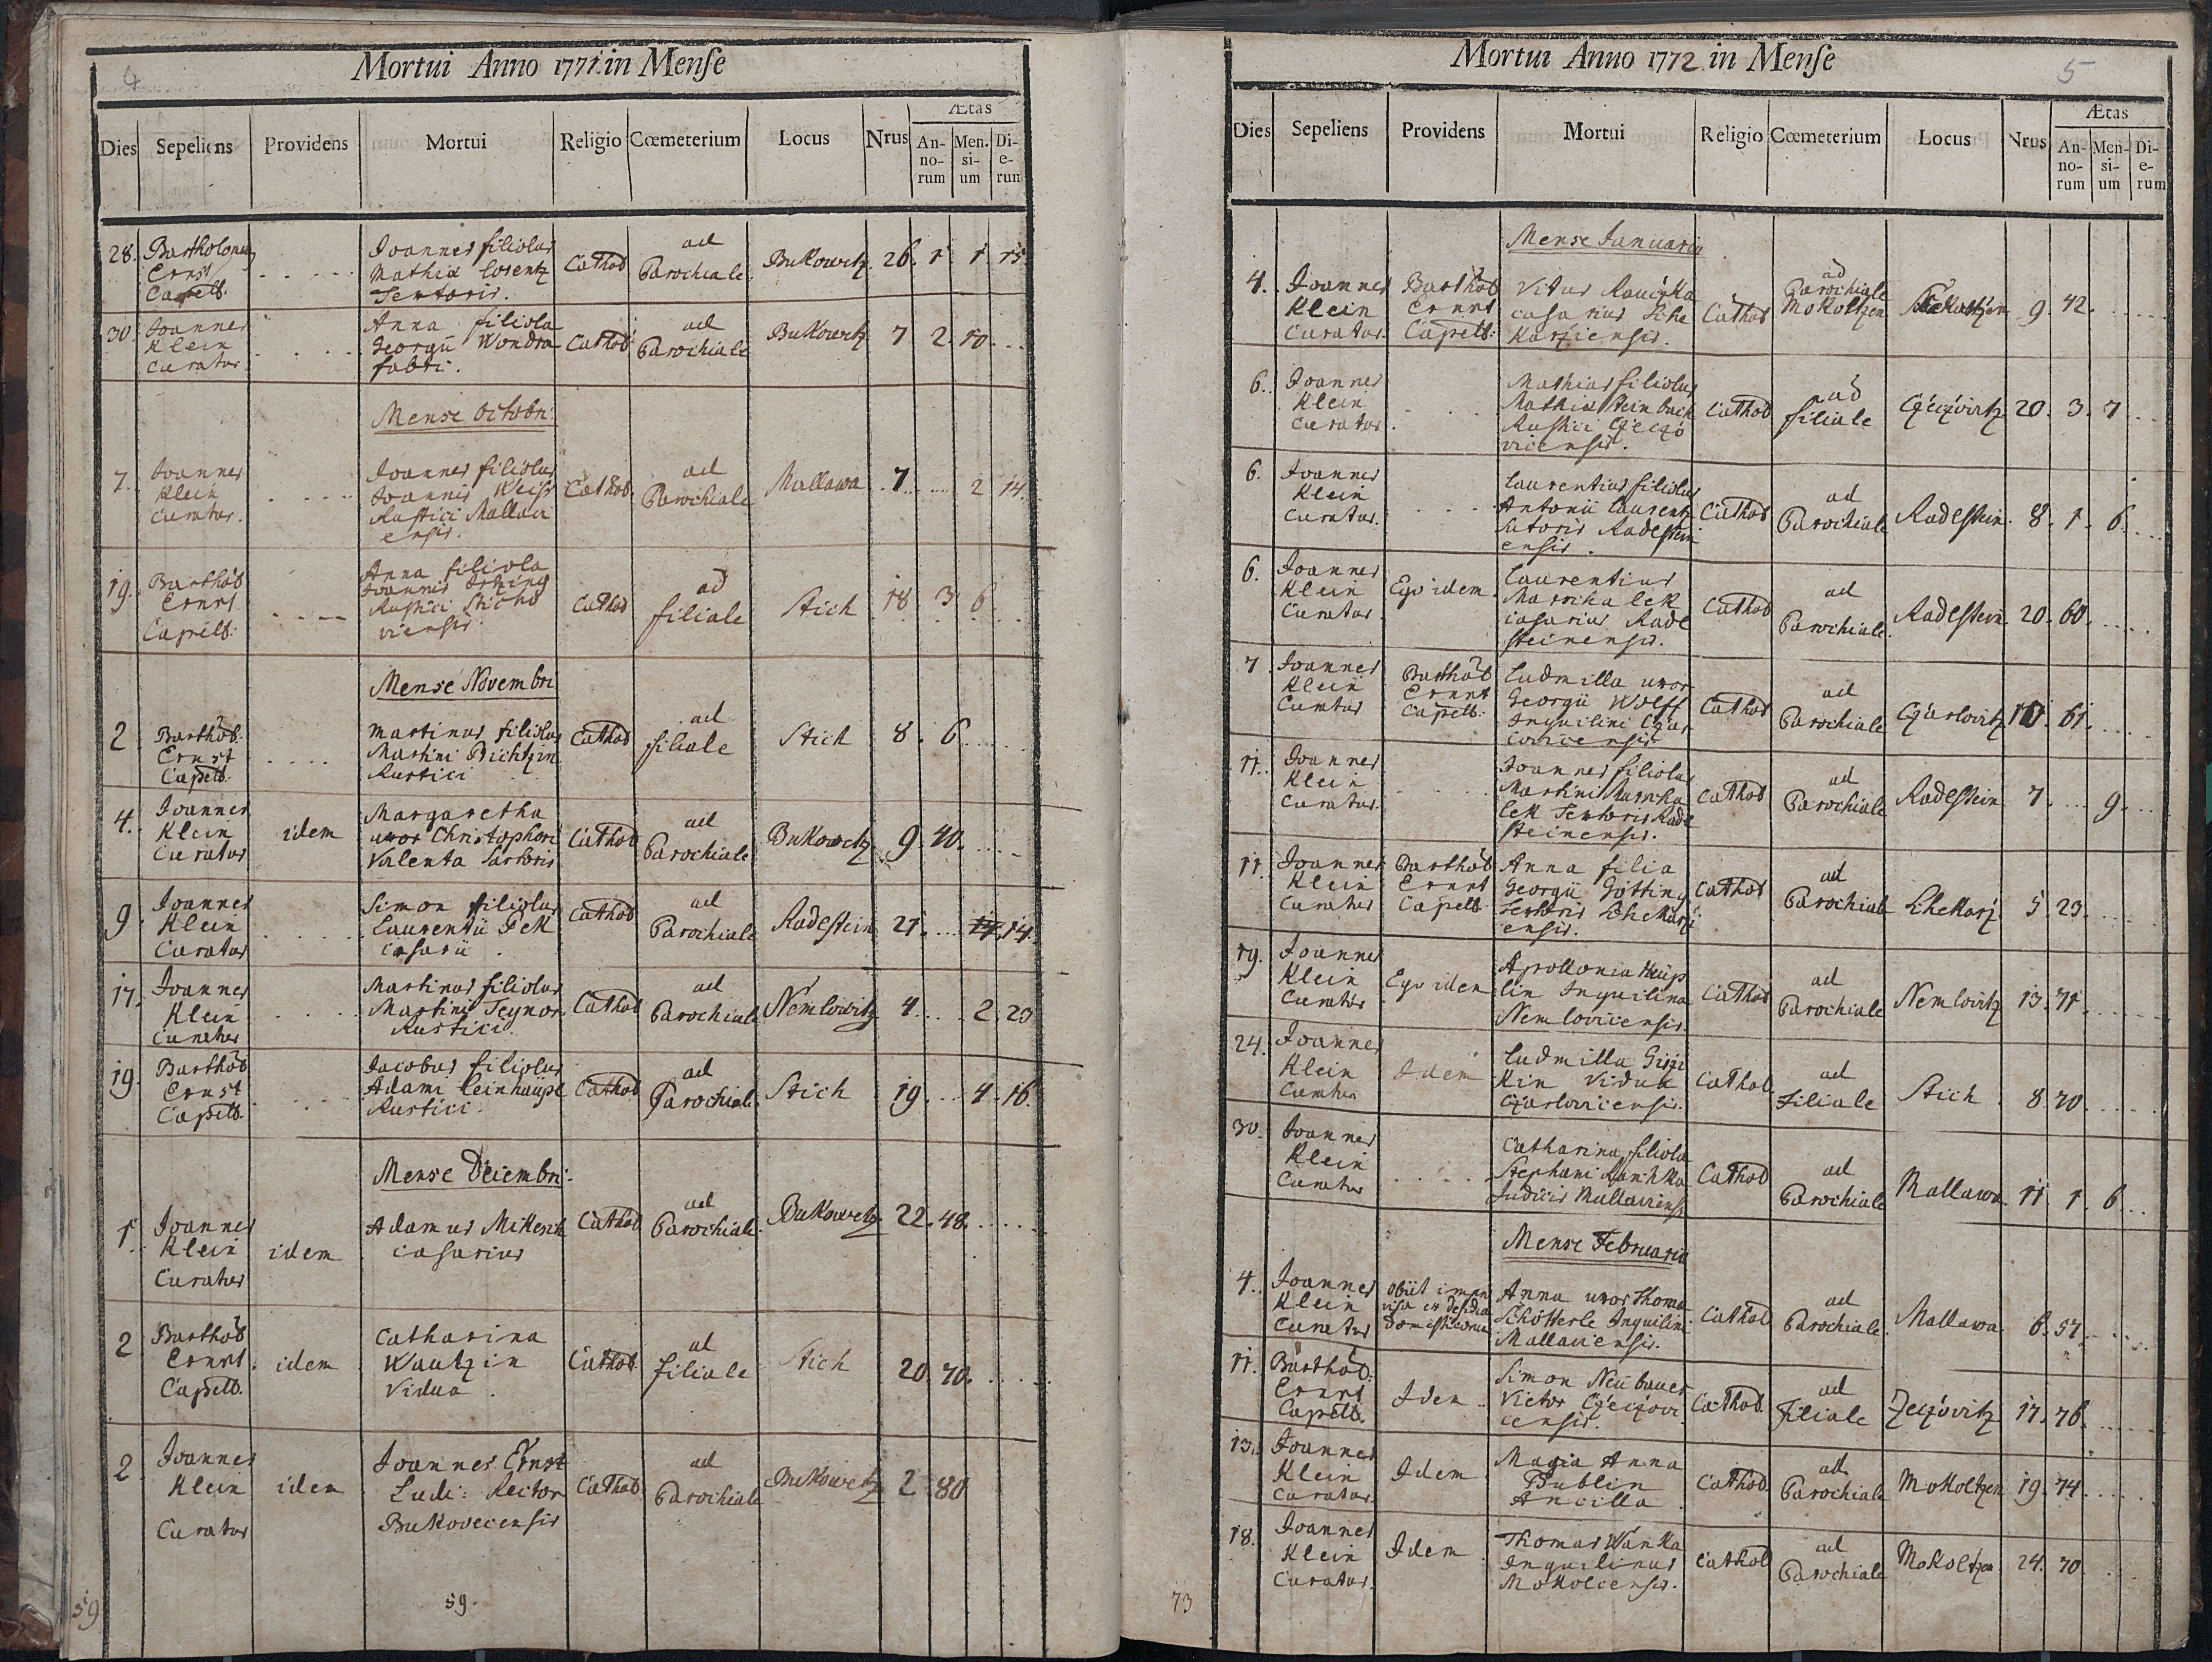 4
Mortui Anno 1771 in Mense
Dies Sepeliens Providens Mortui Religio Cœmeterium Locus Nrus Ætas
An-no-rum Men-si-um Di-e-rum
28. Bartholomeus Ernst Capell. . . . . Joannes filiolus Mathiæ Lorentz Textoris. Cathol ad Parochiale Bukowetz 26. 1. 1 15
30. Joannes Klein Curatus . . . . Anna filiola Georgii Wondra fabri. Cathol ad Parochiale Bukowetz 7 2. 10 . . .
Mense Octobri
7. Joannes Klein Curatus. . . . . Joannes filiolus Joannis Weiss Rustici Mallaviensis. Cathol. ad Parochiale Mallawa 7 . . . 2 14.
19. Barthol Ernst Capell: . . . . Anna filiola Joannis Rustici Stichoviensis. Cathol ad filiale Stich 18 3 6 . . .
Mense Novembri
2 Barthol: Ernst Capell: . . . . Martinus filiolus Martini Rustici Cathol ad filiale Stich 8. 6 . . . .
4. Joannes Klein Curatus idem Margaretha uxor Christophori Valenta Sartoris Cathol ad Parochiale Bukowetz 9. 40. . . .
9. Joannes Klein Curatus . . . . Simon filiolus Laurentii Pek Casarii. Cathol ad Parochiale Radestein 21. . . . 14.
17. Joannes Klein Curatus . . . . Martinus filiolus Martini Teynor Rustici Cathol ad Parochiale Nemlowitz 4. . . . 2. 23
19. Barthol Ernst Capell. . . . . Jacobus filiolus Adami Leinhäupl Rustici. Cathol ad Parochiale Stich 19. . . 4. 16.
Mense Decembri.
1. Joannes Klein Curatus idem Adamus Mikesch casarius Cathol ad Parochiale. Bukowetz 22. 48. . . . .
2 Barthol Ernst Capell. idem Catharina Wautzin Vidua. Cathol. ad filiale Stich 20. 70. . . . .
2 Joannes Klein Curatus idem Joannes Ernst Ludi: Rector Bukovecensis Cathol ad Parochiale Bukowetz 2 80
59.
59
5
Mortui Anno 1772 in Mense
Dies Sepeliens Providens Mortui Religio Cœmeterium Locus Nrus Ætas
An-no-rum Men-si-um Di-e-rum
Mense Januario
4. Joannes Klein Curatus. Barthol Ernst Capell: Vitus casarius Schekarziensis. Cathol ad Parochiale Mokoltzen 9. 42. . . . .
6. Joannes Klein Curatus. . . . . Mathias filiolus Mathiæ Steinbach Rustici Czeczovicensis. Cathol ad filiale Czeczovitz 20. 3. 7 . . .
6. Joannes Klein Curatus. . . . . Laurentius filiolus Antonii Laurentz Sutoris Radesteinensis. Cathol ad Parochiale Radestein. 8. 1. 6. . . .
6. Joannes Klein Curatus. Ego idem Laurentius Marschalek casarius Radesteinensis. Cathol ad Parochiale. Radestein. 20. 60. . . . .
7. Joannes Klein Curatus Barthol Ernst Capell: Ludmilla uxor Georgii Wolff Inquilini Czarlovicensis Cathol ad Parochiale Czarlovitz 61. . . . .
11. Joannes Klein Curatus. . . . . Joannes filiolus Martini Marschalek Textoris Radesteinensis. Cathol ad Parochiale Radestein 7. . . . 9. . .
11. Joannes Klein Curatus Barthol Ernst Capell Anna filia Georgii Götting Textoris Schekarziensis. Cathol ad Parochiale Schekarz 5. 23. . . . .
19. Joannes Klein Curatus Ego idem Apollonia Inquilina Nemlovicensis. Cathol ad Parochiale Nemlovitz 13. 71. . . . .
24. Joannes Klein Curatus Idem Ludmilla Vidua Czarlovicensis. Cathol. ad Filiale Stich 8. 70 . . . .
30. Joannes Klein Curatus . . . . Catharina filiola Stephani Judicis Mallaviensis Cathol ad Parochiale Mallawa 11 1. 6 . .
Mense Februario
4. Joannes Klein Curatus obiit improvisa ex desidia domesticorum Anna uxor Thomæ Schötterle Inquilini Mallaviensis. Cathol ad Parochiale. Mallawa 6. 57. . . . .
11. Barthol: Ernst Capell. Idem Simon Neübauer Victor Czeczovicensis. Cathol. ad Filiale Zeczovitz 17. 76. . . . .
13. Joannes Klein Curatus. Idem Maria Anna Bublin Ancilla. Cathol ad Parochiale Mokoltzen 19. 74. . . . .
18. Joannes Klein Curatus. Idem Thomas Wanka Inquilinus Mokolcensis. Cathol ad Parochiale Mokoltzen 24. 70 . . .
73